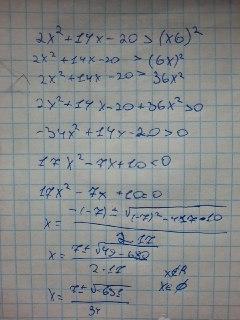 2x²+14x-20 > (x6)²
2x²+14x-20 > (6x)²
2x²+14x-20 > 36x²
2x²+14x-20+36x²>0
-34x²+14x-20>0
17x²-7x+10<0
17x²-7x+10=0
x = -(-7)±√(-7)²-4·17·10 / 2·17
x = 7±√49-680 / 2·17 x∉R
x = 7±√-631 / 34 x∈∅